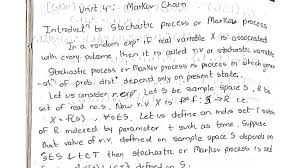 Unit 4 :- Markov Chain
Introduct^n to Stochastic process or Markov process
In a random exp^t if real variable X is associated
with every outcome, then it is called r.v or stochastic variable
Stochastic process or Markov process is process in which
of prob. dist^n depend only on present state.
Let us consider r.exp^t. Let S be sample space, R be
set of real no.s, Now r.v X is f: S → R i.e.
X = f(s) , ∀ s∈S. Let us define an indx set
of R indexed by parameter t such as time. Suppose
that value of r.v defined on sample space S depends on
s∈S & t∈T then stochastic or Markov process is set
defined on S.